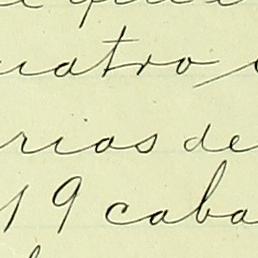 que
uatro
rios de
19 caba